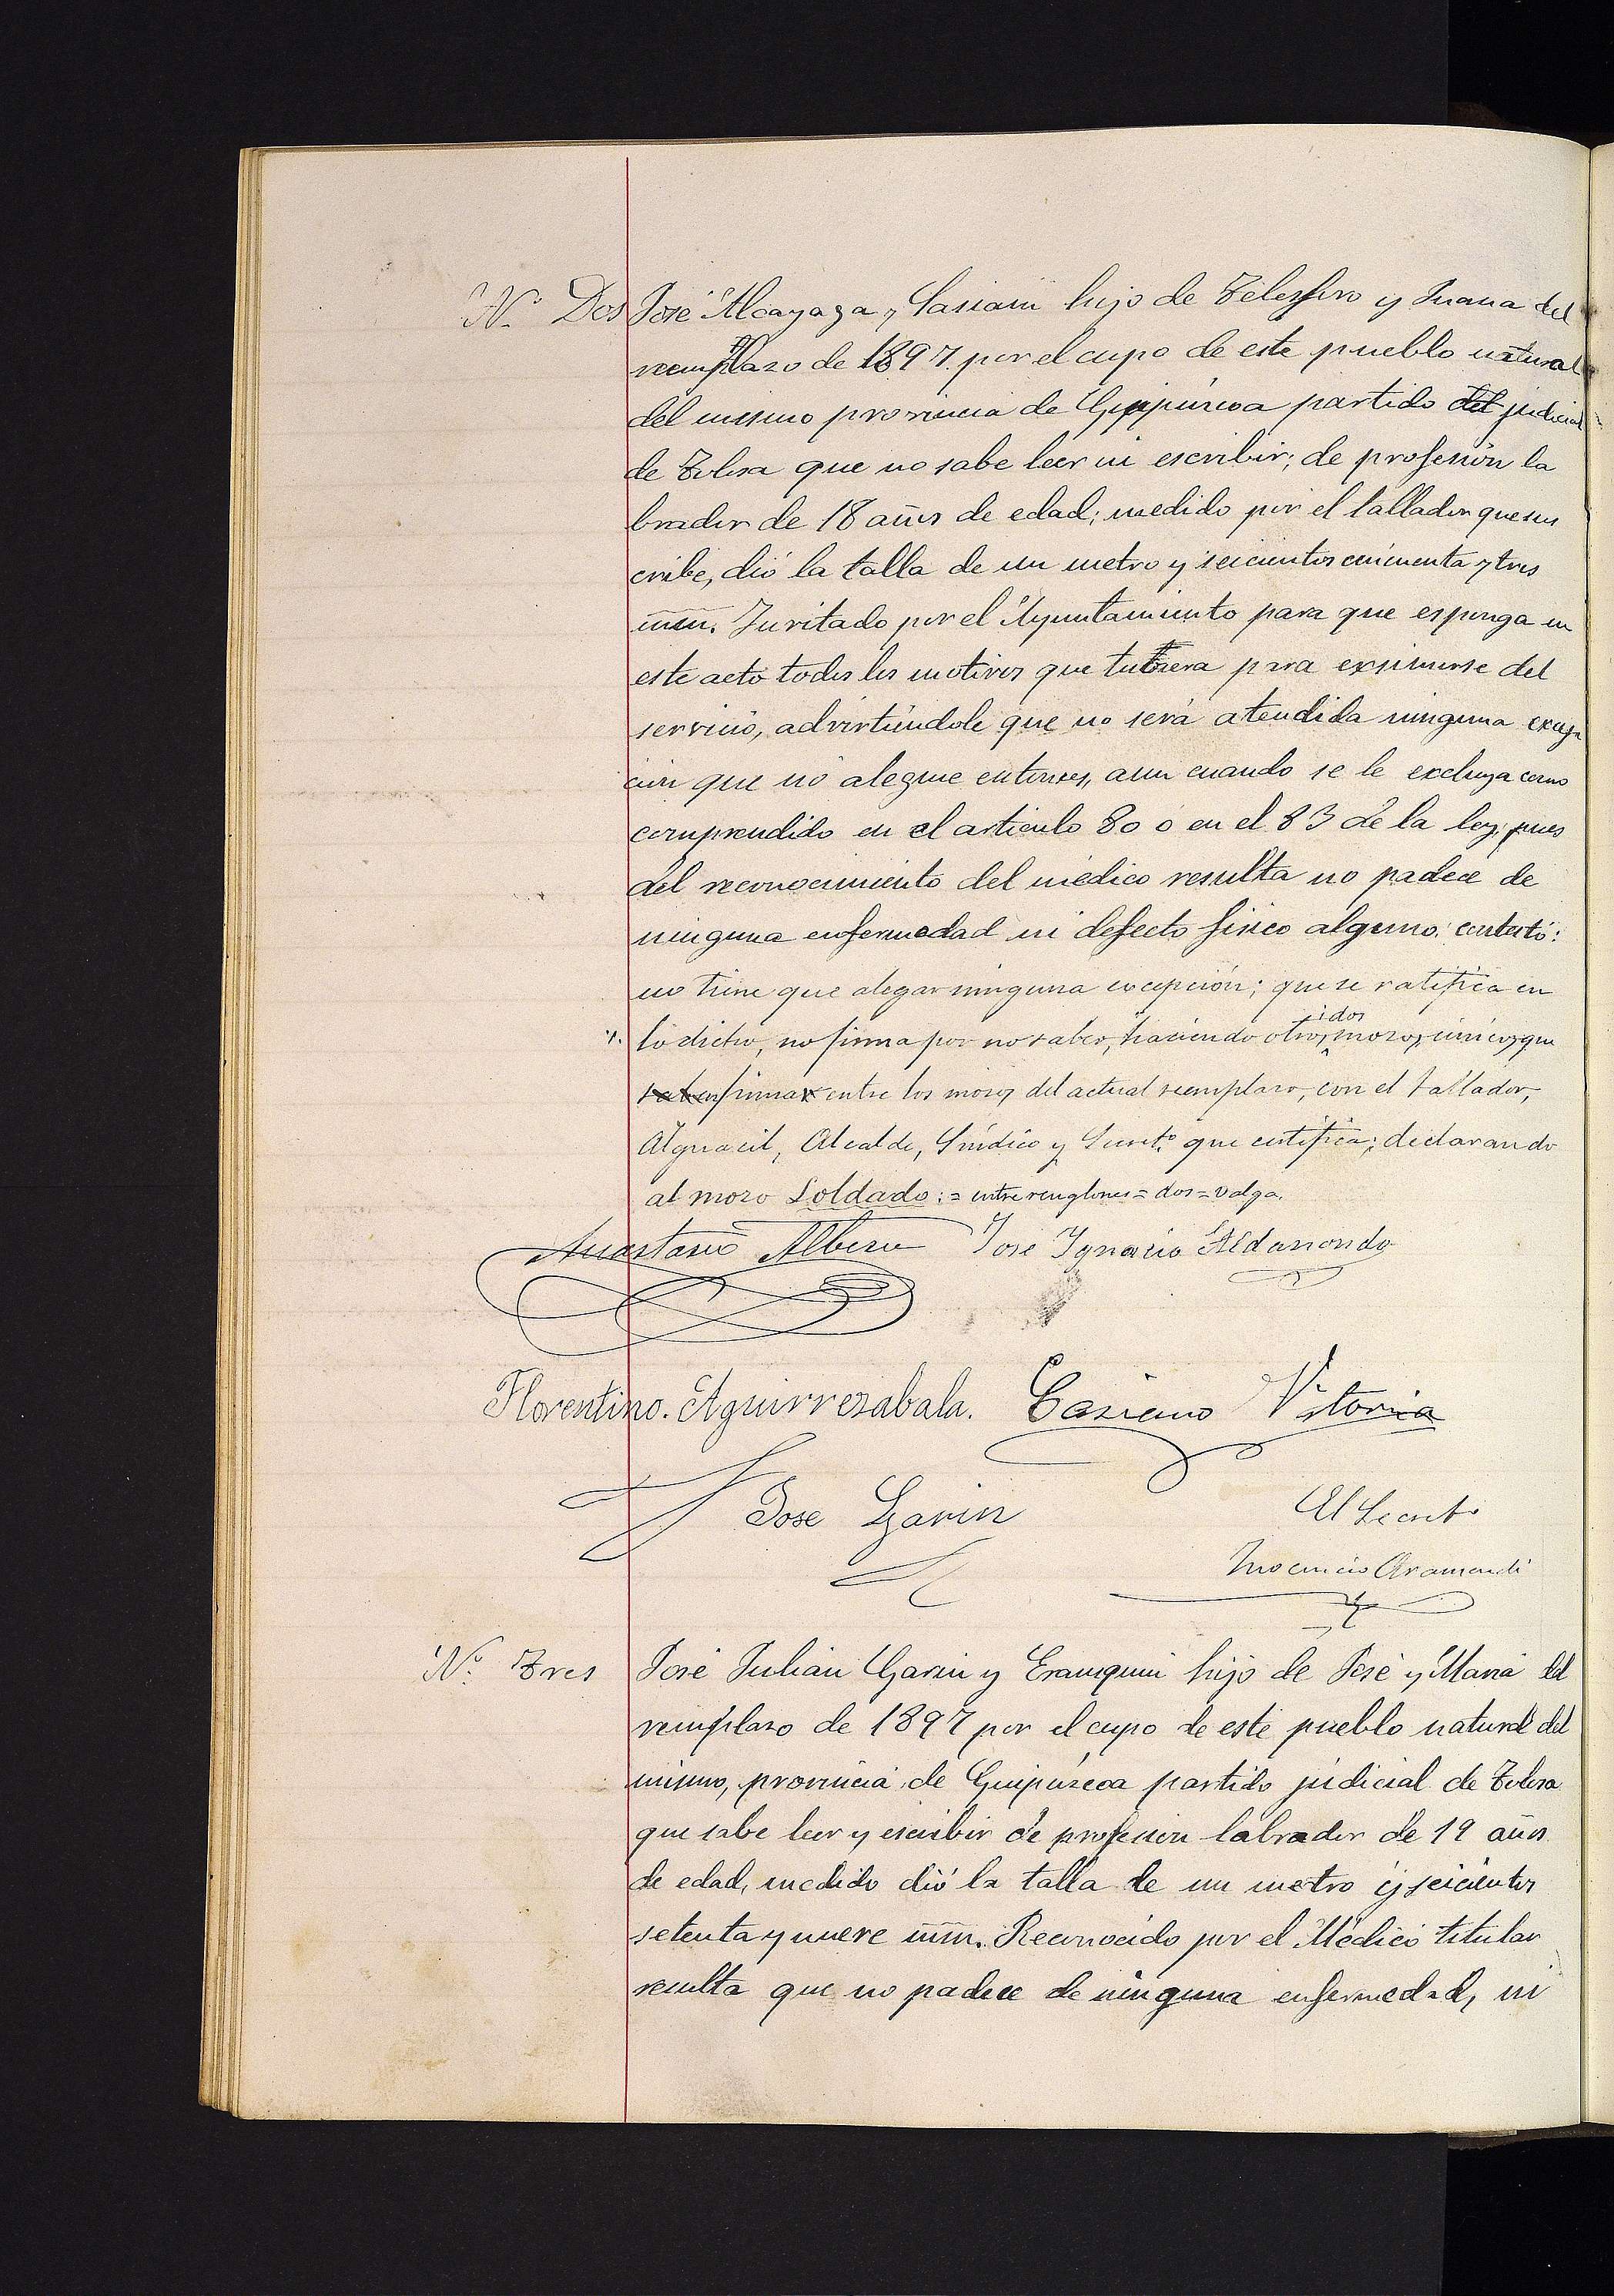 Nº Dos José Alcayaga y Sasiain hijo de Telesforo y Juana del
remplazo de 1897 por el cupo de este pueblo natural
del mismo provincia de Guipúzcoa partido del judicial
de Tolosa que no sabe leer ni escribir; de profesión la
brador de 18 años de edad; medido por el tallador que sus
cribe, dió la talla de un metro y seicientos cincuenta y tres
mm. Invitado por el Ayuntamiento para que esponga en
este acto todos los motivos que tubiera para exsimirse del
servicio, advirtiéndole que no será atendida ninguna excep
ción que no alegue entonces, aun cuando se le excluya como
comprendido en el articulo 80 ó en el 83 de la ley; pues
del reconocimiento del médico resulta no padece de
ninguna enfermedad ni defecto fisico alguno: contestó:
no tiene que alegar ninguna escepción; que se ratifica en
lo dicho, no firma por no saber, haciendo otros dos mozos, únicos, que
saben firmar entre los mozos del actual reemplazo, con el tallador,
Alguacil, Alcalde, Síndico y Secretº que certifica; declarando
al mozo Soldado: = entre renglones = dos = valga.
Anastasio Albisu José Ygnacio Aldanondo
Florentino. Aguirrezabala. Casiano Vitoria
Jose Garin El Secretº
Inocencio Aramendi
Nº Tres José Julián Garin y Erausquin hijo de José y María del
remplazo de 1897 por el cupo de este pueblo natural del
mismo, provincia de Guipúzcoa partido judicial de Tolosa
que sabe leer y escribir de profesion labrador de 19 años
de edad, medido dió la talla de un metro y seicientos
setenta y nueve mm. Reconocido por el Médico titular
resulta que no padece de ninguna enfermedad, ni